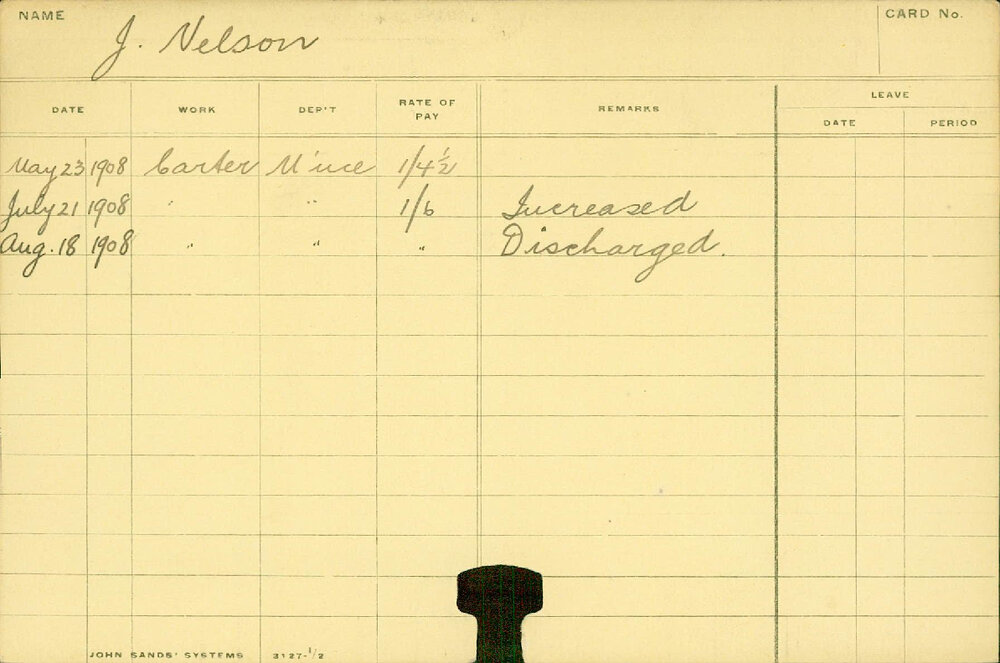 NAME J. Nelson CARD No.
DATE WORK DEP'T RATE OF PAY REMARKS LEAVE
DATE PERIOD
May 23 1908 Carter M'nce 1/4½
July 21 1908 " " 1/6 Increased
Aug. 18 1908 " " " Discharged.
JOHN SANDS' SYSTEMS 3127-1/2